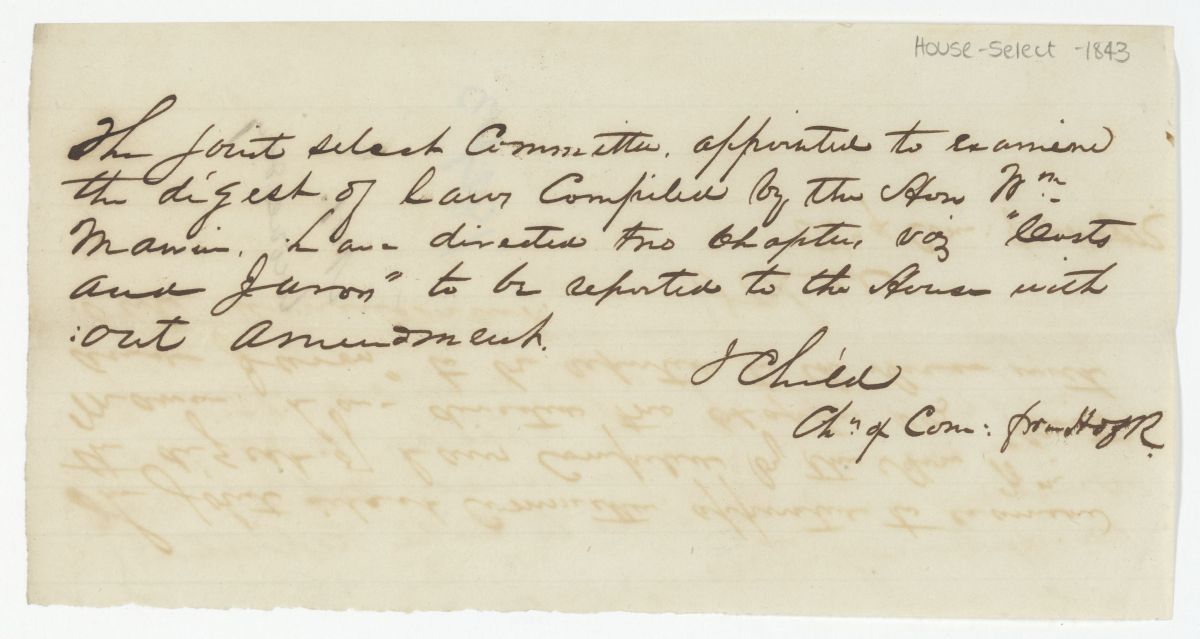 House-Select -1843
The Joint select Committee, appointed to examine
the digest of Laws Compiled by the Hon Wm
Marvin, have directed two Chapters, viz "Costs
and Jurors" to be reported to the House with
:out amendment.
J Child
Chn of Com: from H of R.